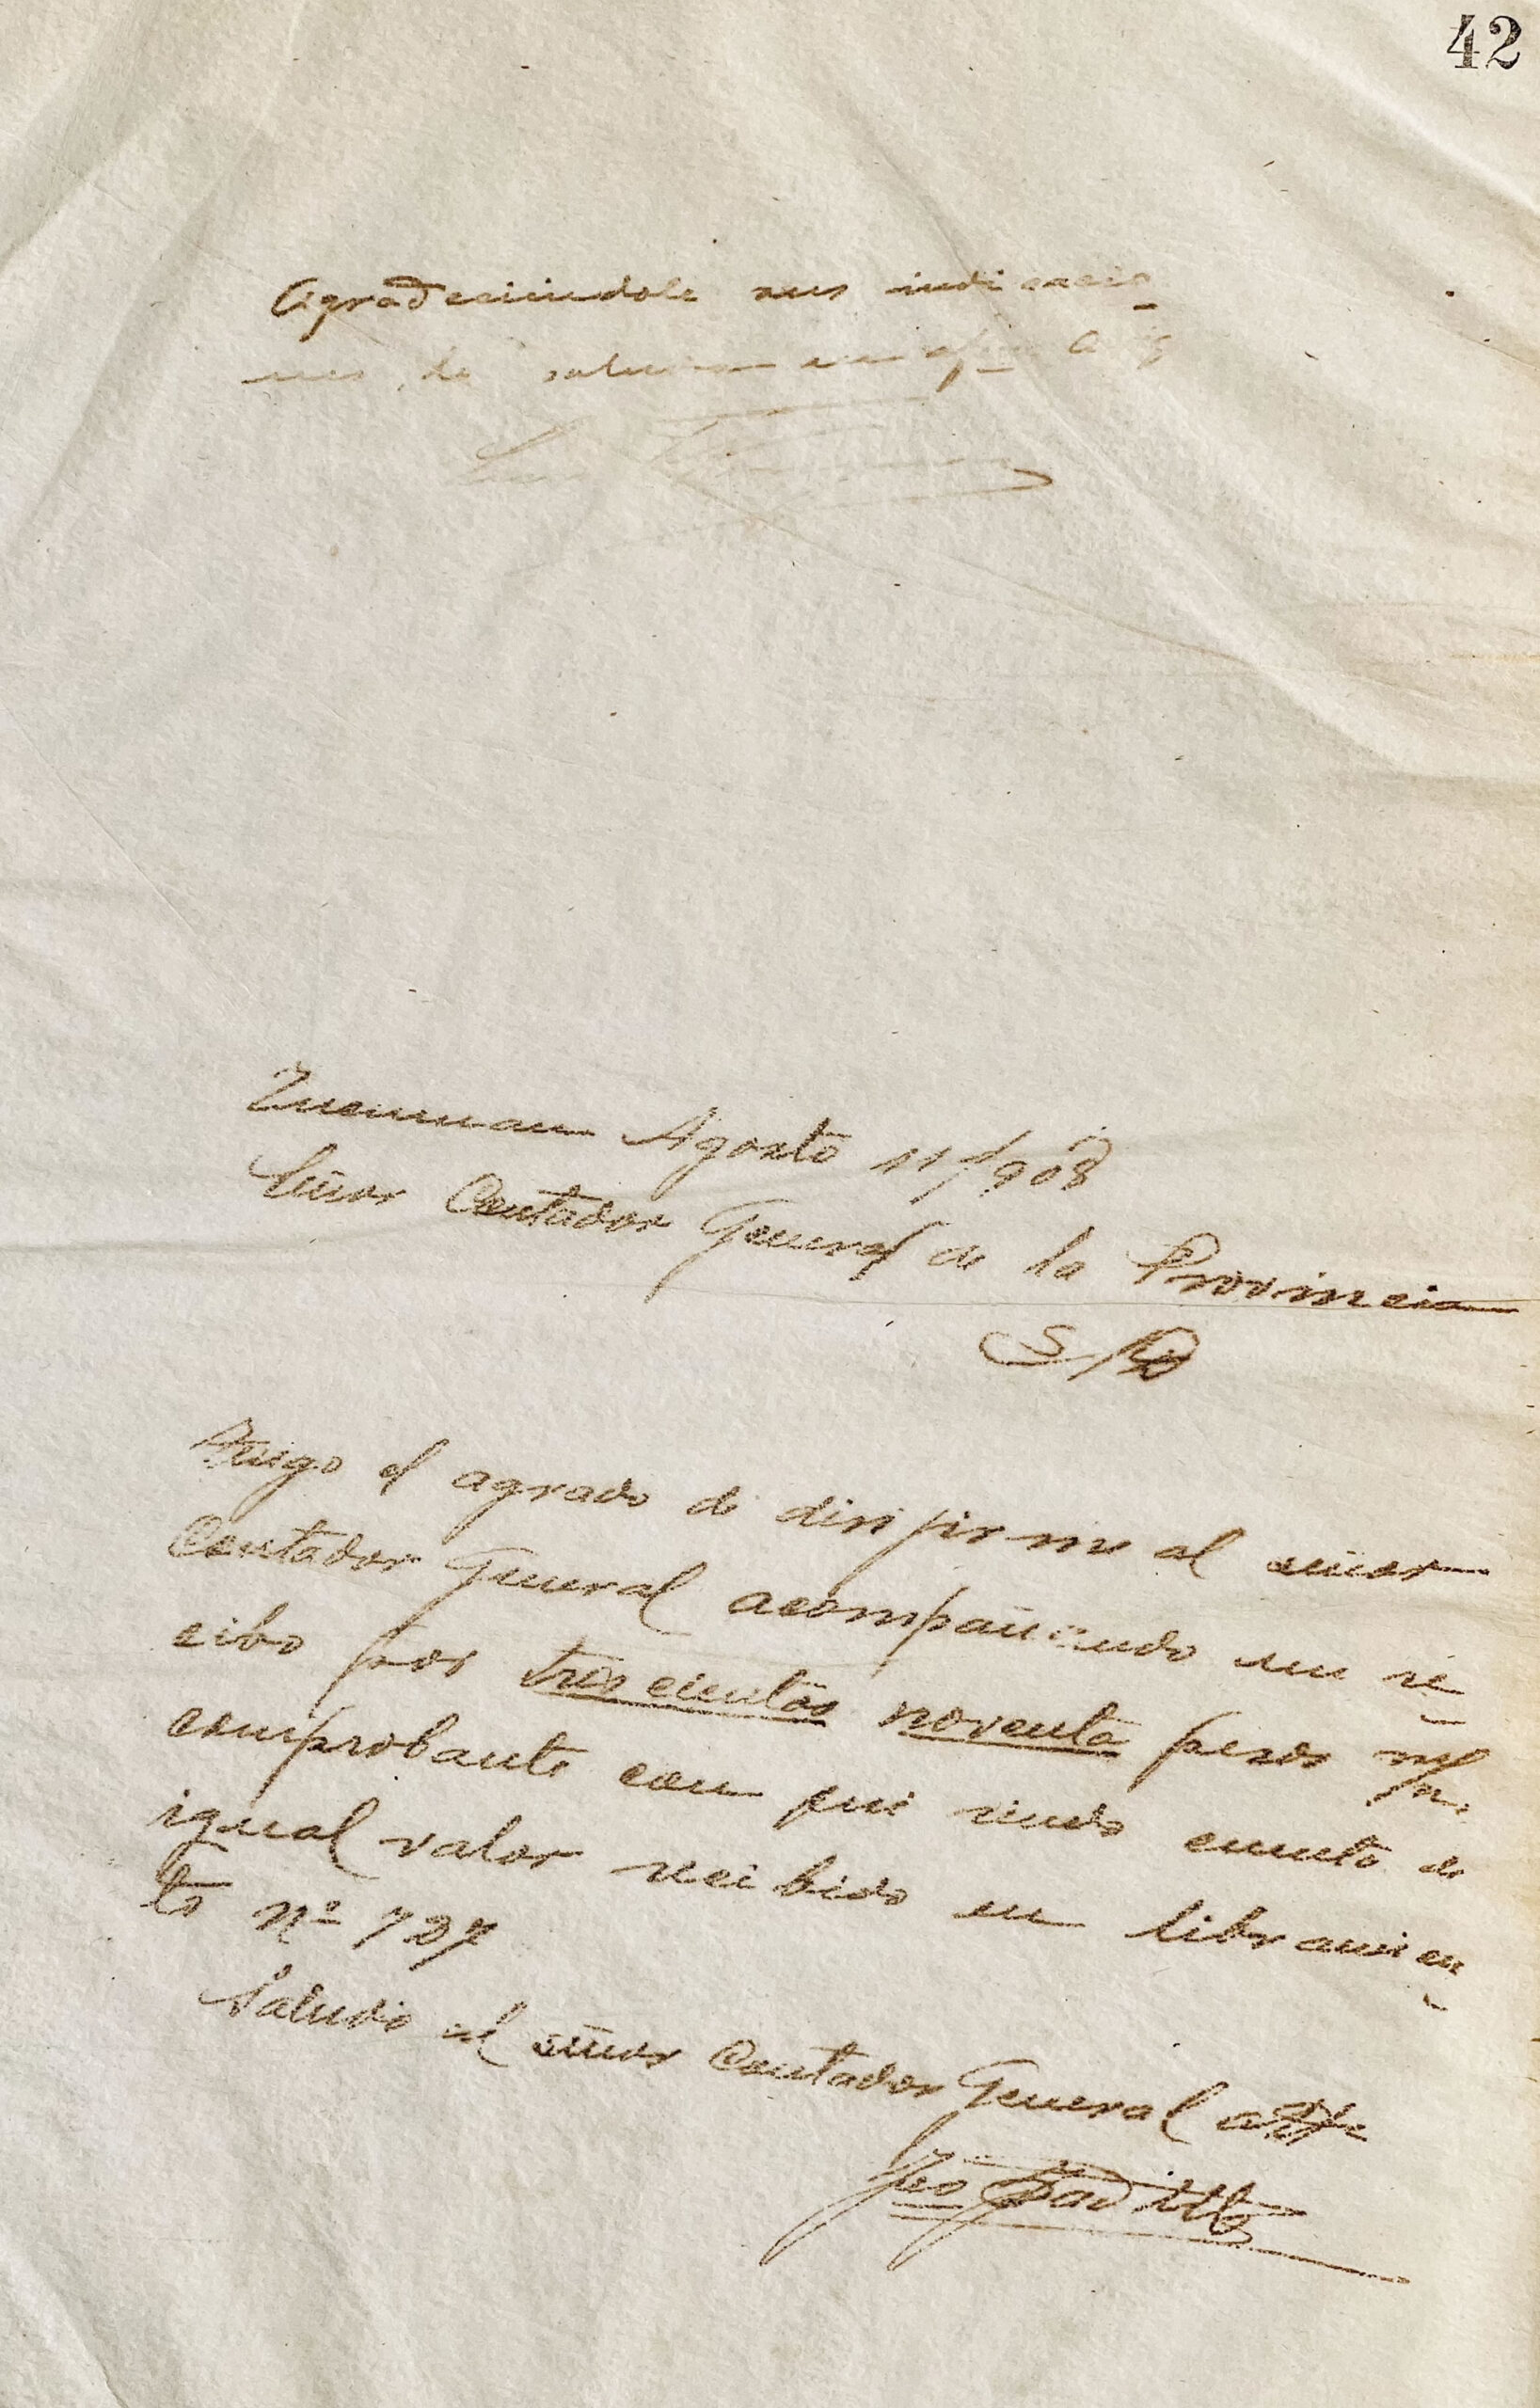 42
Agradeciendole sus indicacio-
nes, lo saluda
Tucuman Agosto 11/908
Señor Contador General de la Provincia
S/D
Tengo el agrado de dirijirme al señor
Contador General acompañando un re-
cibo por trescientos noventa pesos m/n.
comprobante con que rindo cuenta de
igual valor recibido en libramien-
to Nº 727
Saludo al señor Contador General atte